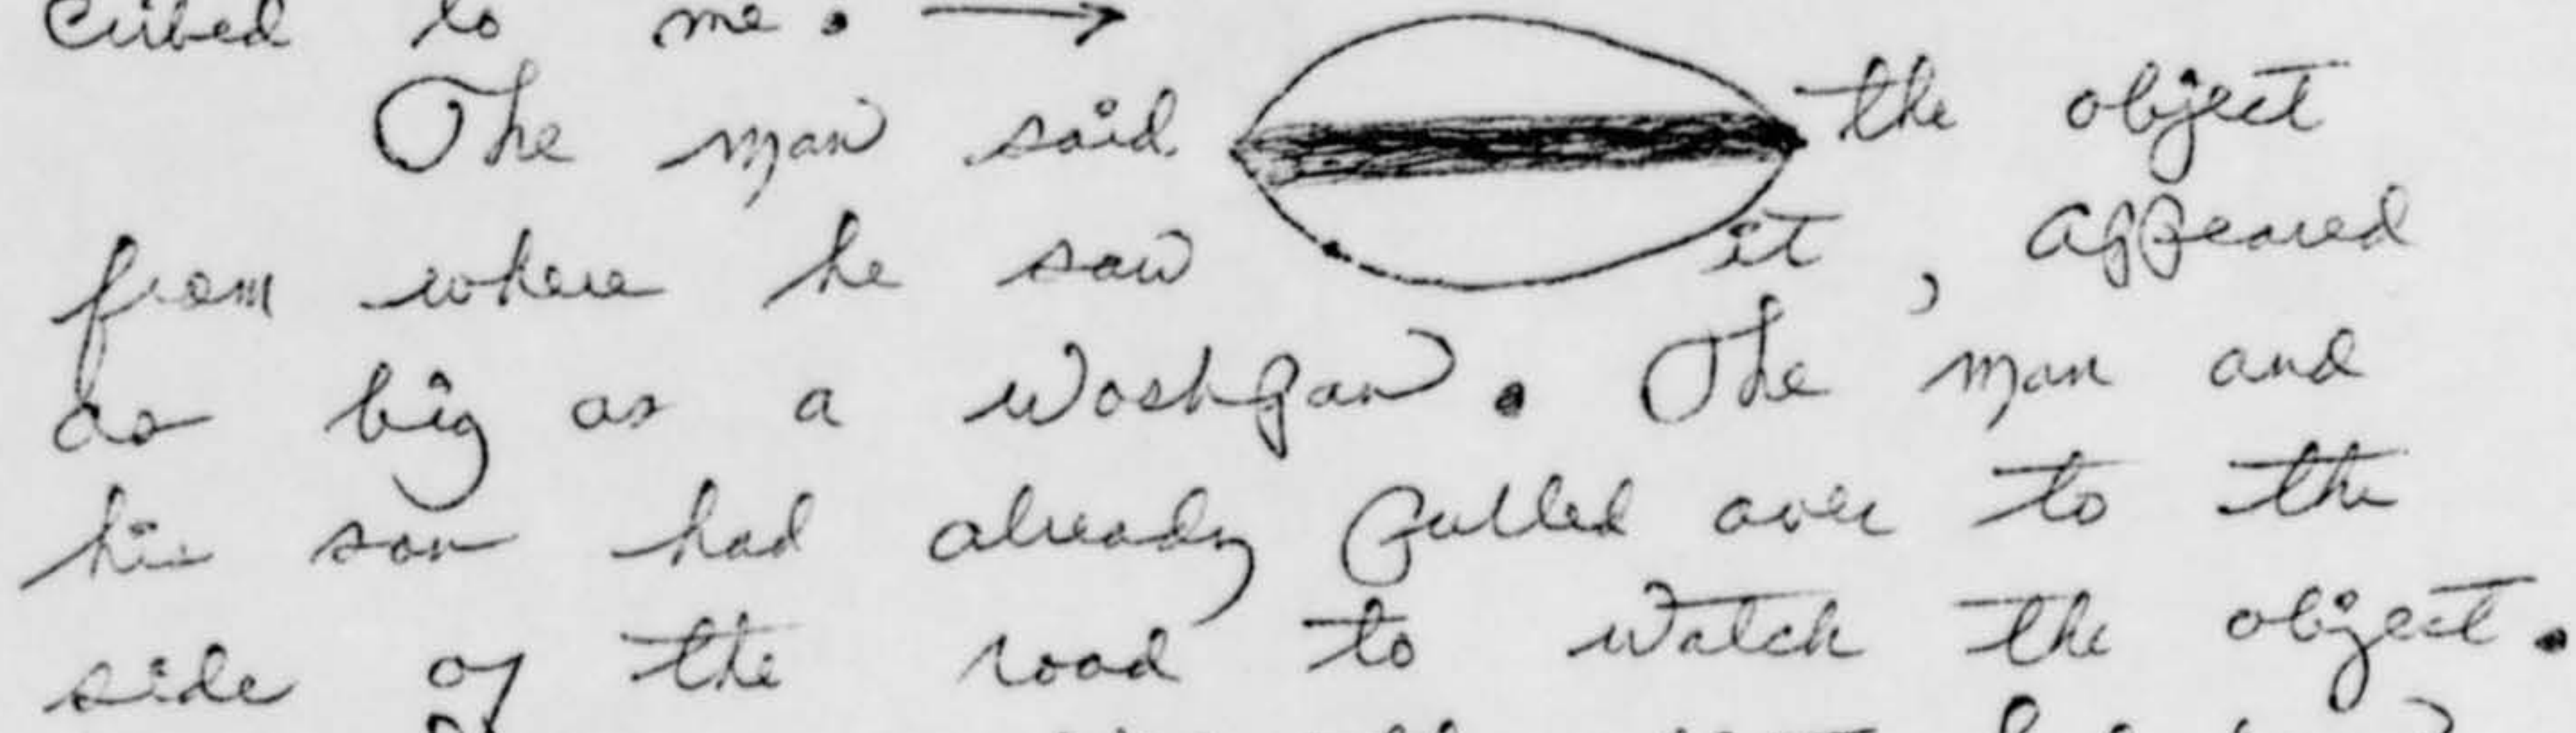 cribed to me. →
The man said the object
from where he saw it, appeared
as big as a washpan. The man and
his son had already pulled over to the
side of the road to watch the object.